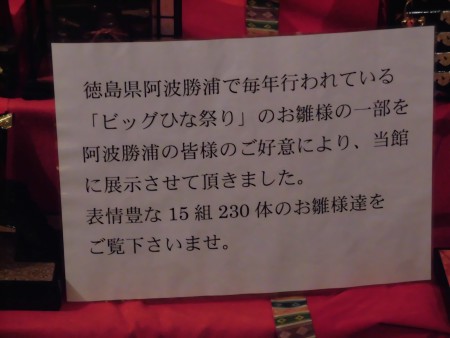 徳島県阿波勝浦で毎年行われている
「ビッグひな祭り」のお雛様の一部を
阿波勝浦の皆様のご好意により、当館
に展示させて頂きました。
表情豊な 15 組 230 体のお雛様達を
ご覧下さいませ。